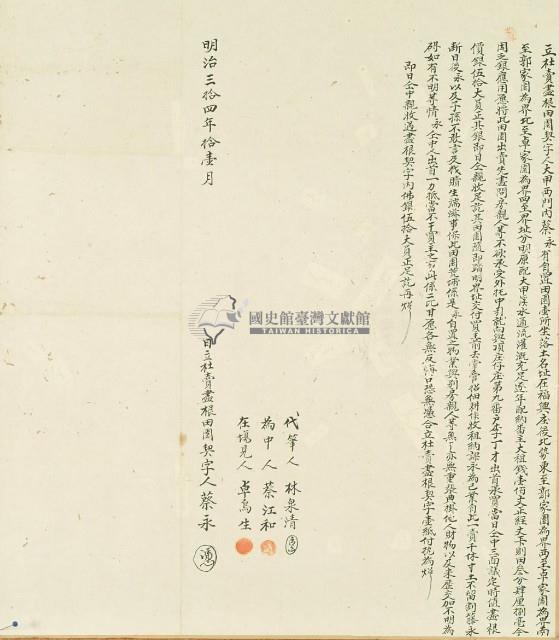 立杜賣盡根田園契字人大甲西門內蔡永有自置田園壹所坐落土名址在福興庄後北勢東至郭家園為界西至卓家園為界南
至郭家園為界北至卓家園為界四至界址分明原配大甲溪水通流灌溉充足逐年配納番主大租錢壹佰文正經丈下則田叁分肆厘捌毫今
因乏銀應用愿將此田園出賣先盡問房親人等不欲承受外托中引就向與項庄仔庄第九番戶李丁才出首承買當日仝中三面議定時值盡根
價銀伍拾大員正其銀即日仝親收足訖其田園隨即踏明界址交付買主前去掌管招佃耕作收租納課永為己業自此一賣千休寸土不留割藤永
斷日後永以及子孫不敢言及找贖生端滋事保此田園業物係是永自置之物業與別房親人等無干亦無重張典掛他人財物以及來歷交加不明為
碍如有不明等情永仝中人出首一力抵當不干買主之事此係二比甘愿各無反悔口恐無憑合立杜賣盡根契字壹紙付執為炤
即日仝中親收過盡根契字內佛銀伍拾大員正足訖再炤
代筆人 林泉清
為中人 蔡江和
在場見人 卓烏生
日立杜賣盡根田園契字人 蔡永
明治三拾四年拾壹月
國史館臺灣文獻館
TAIWAN HISTORICA